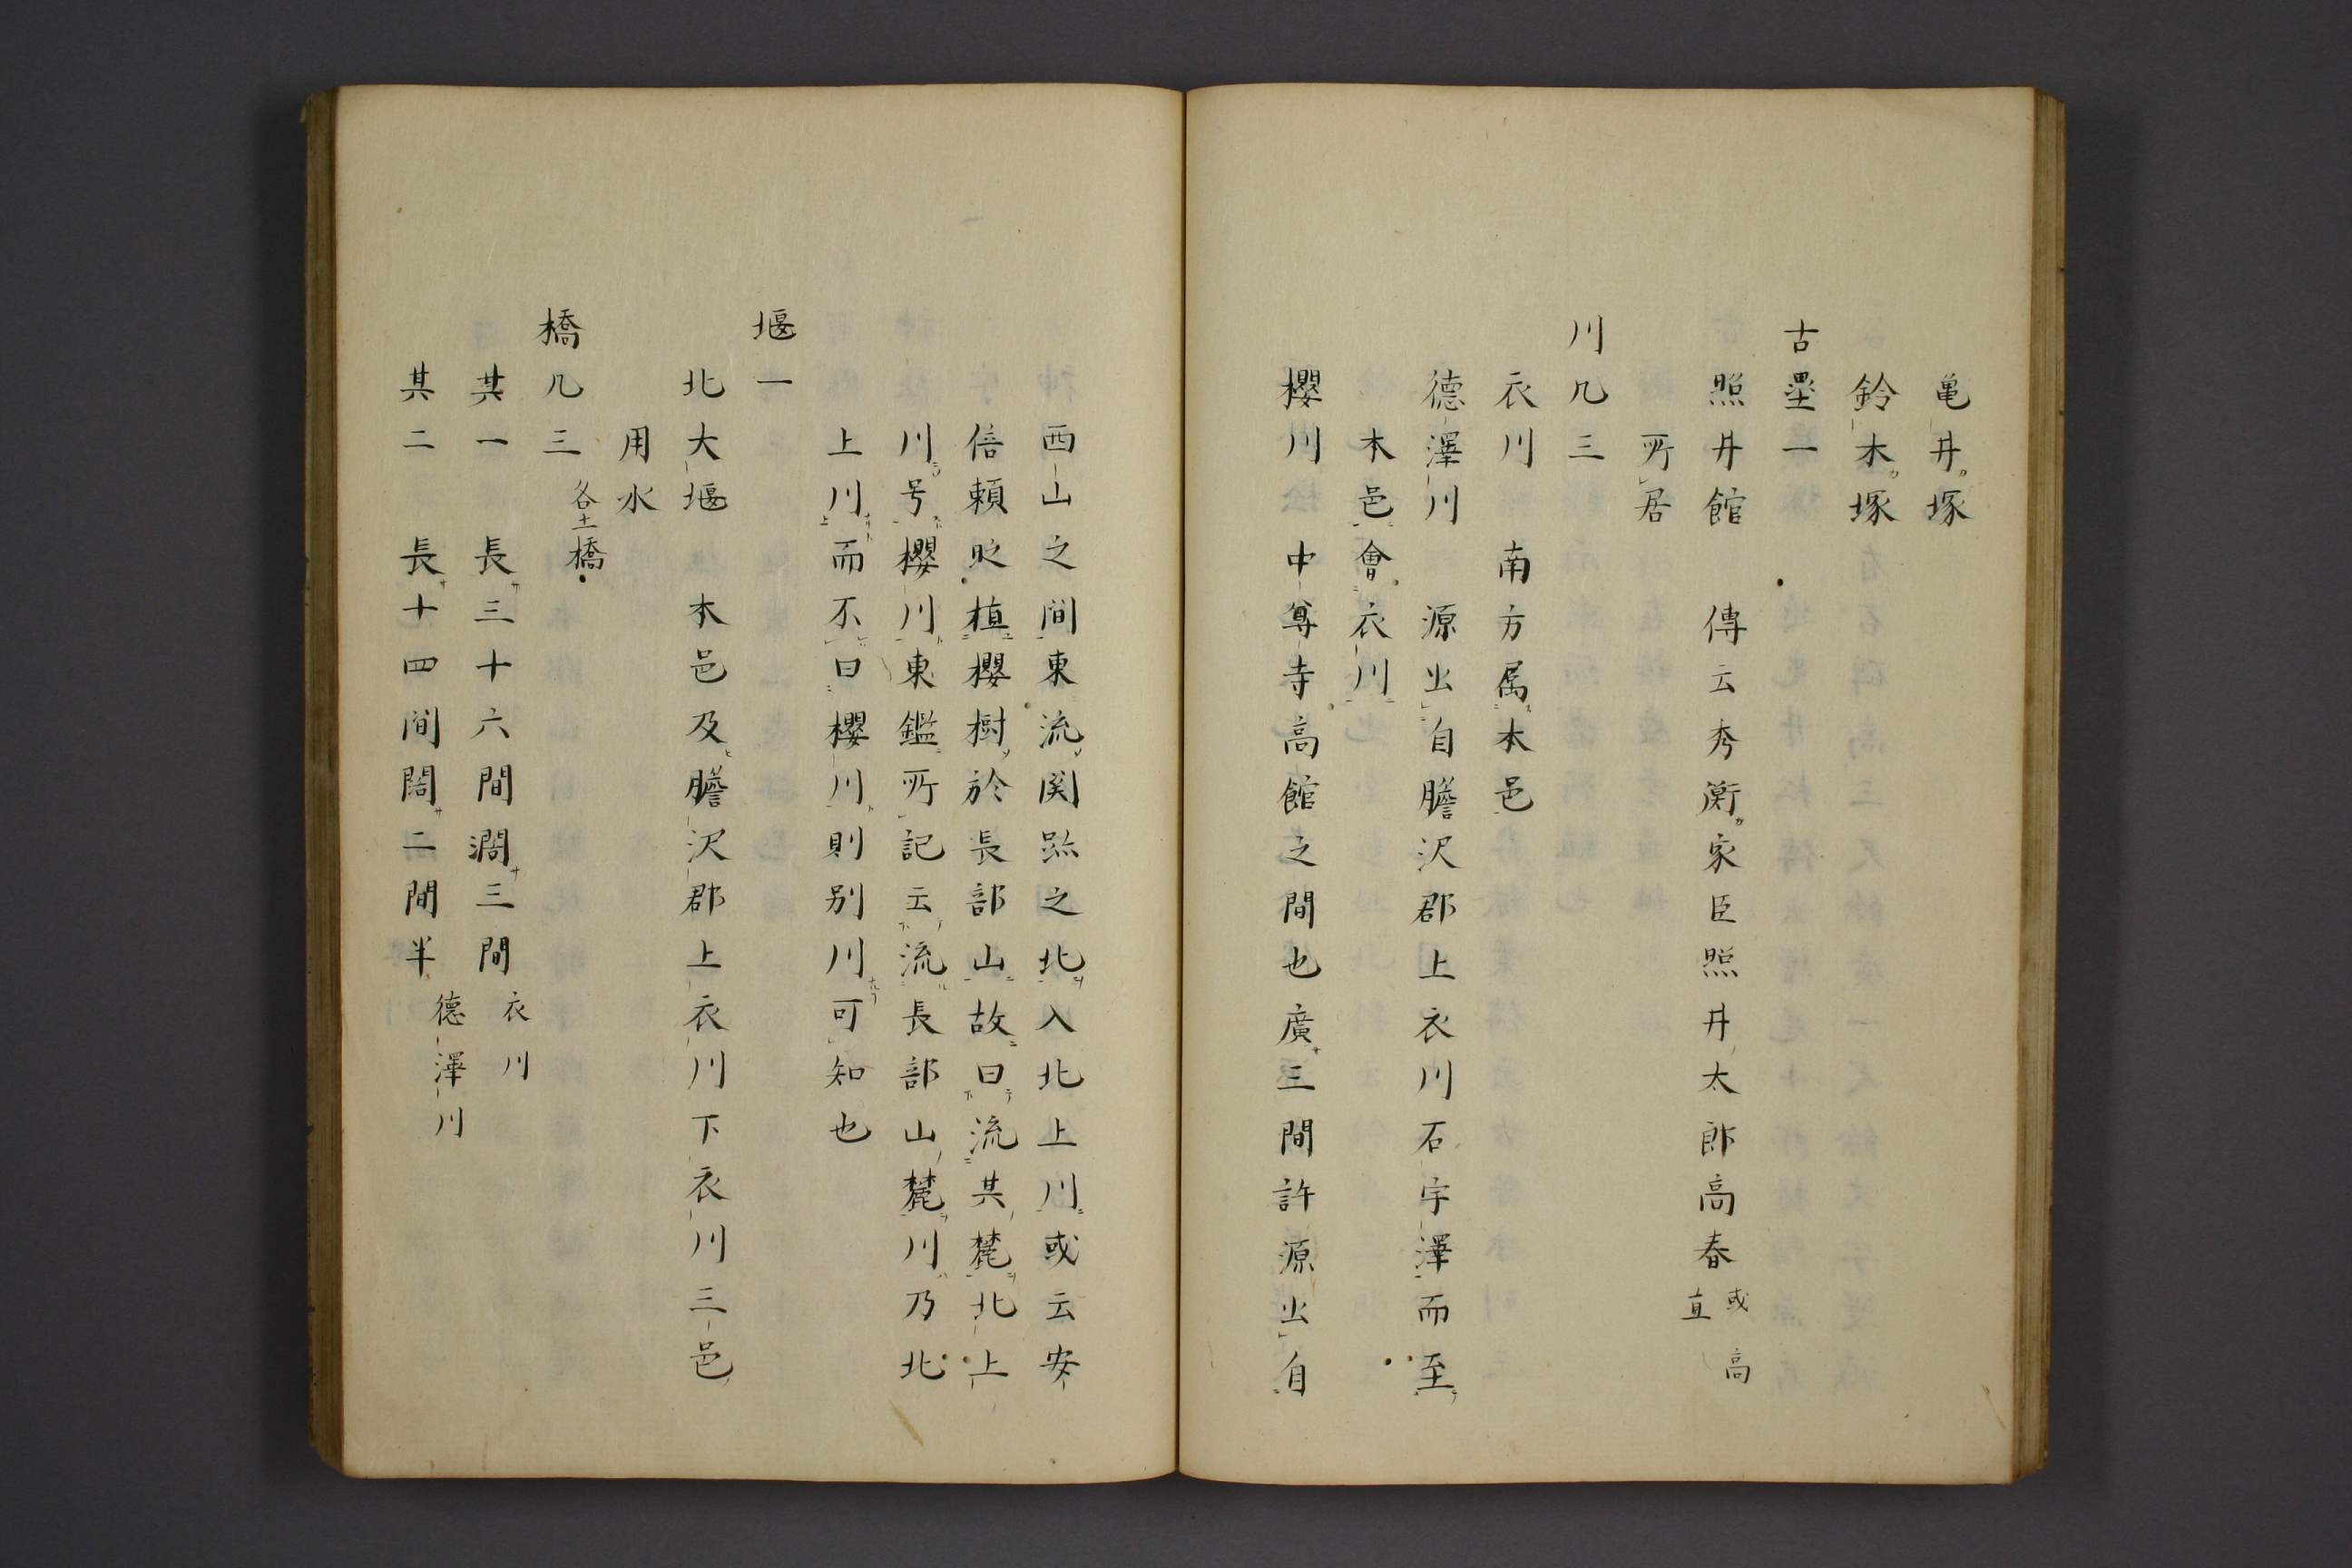 亀井塚
鈴木塚
古壘一
照井館　傳云秀衡家臣照井太郎高春或高直
所居
川凡三
衣川　南方属本邑
德澤川　源出自膽沢郡上衣川石宇澤而至
本邑會衣川
櫻川　中尊寺高館之間也廣三間許源出自
西山之間東流関跡之北入北上川或云安
倍頼时植櫻樹於長部山故曰流其麓北上
川号櫻川東鑑所記云流長部山麓川乃北
上川而不曰櫻川則别川可知也
堰一
北大堰　本邑及膽沢郡上衣川下衣川三邑
用水
橋凡三各土橋
其一　長三十六間濶三間衣川
其二　長十四間闊二間半德澤川